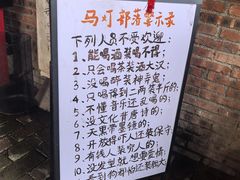 马灯部落警示录
下列人员不受欢迎：
1、能喝酒装喝不得；
2、只会喝茶装酒大汉；
3、没喝醉装神弄鬼；
4、只喝得到二两装半斤的；
5、不懂音乐还乱喝的；
6、没文化背唐诗的；
7、天黑带墨镜的；
8、开放得吓人还装保守
9、有钱人装穷人的；
10、没发型就想要爱情；